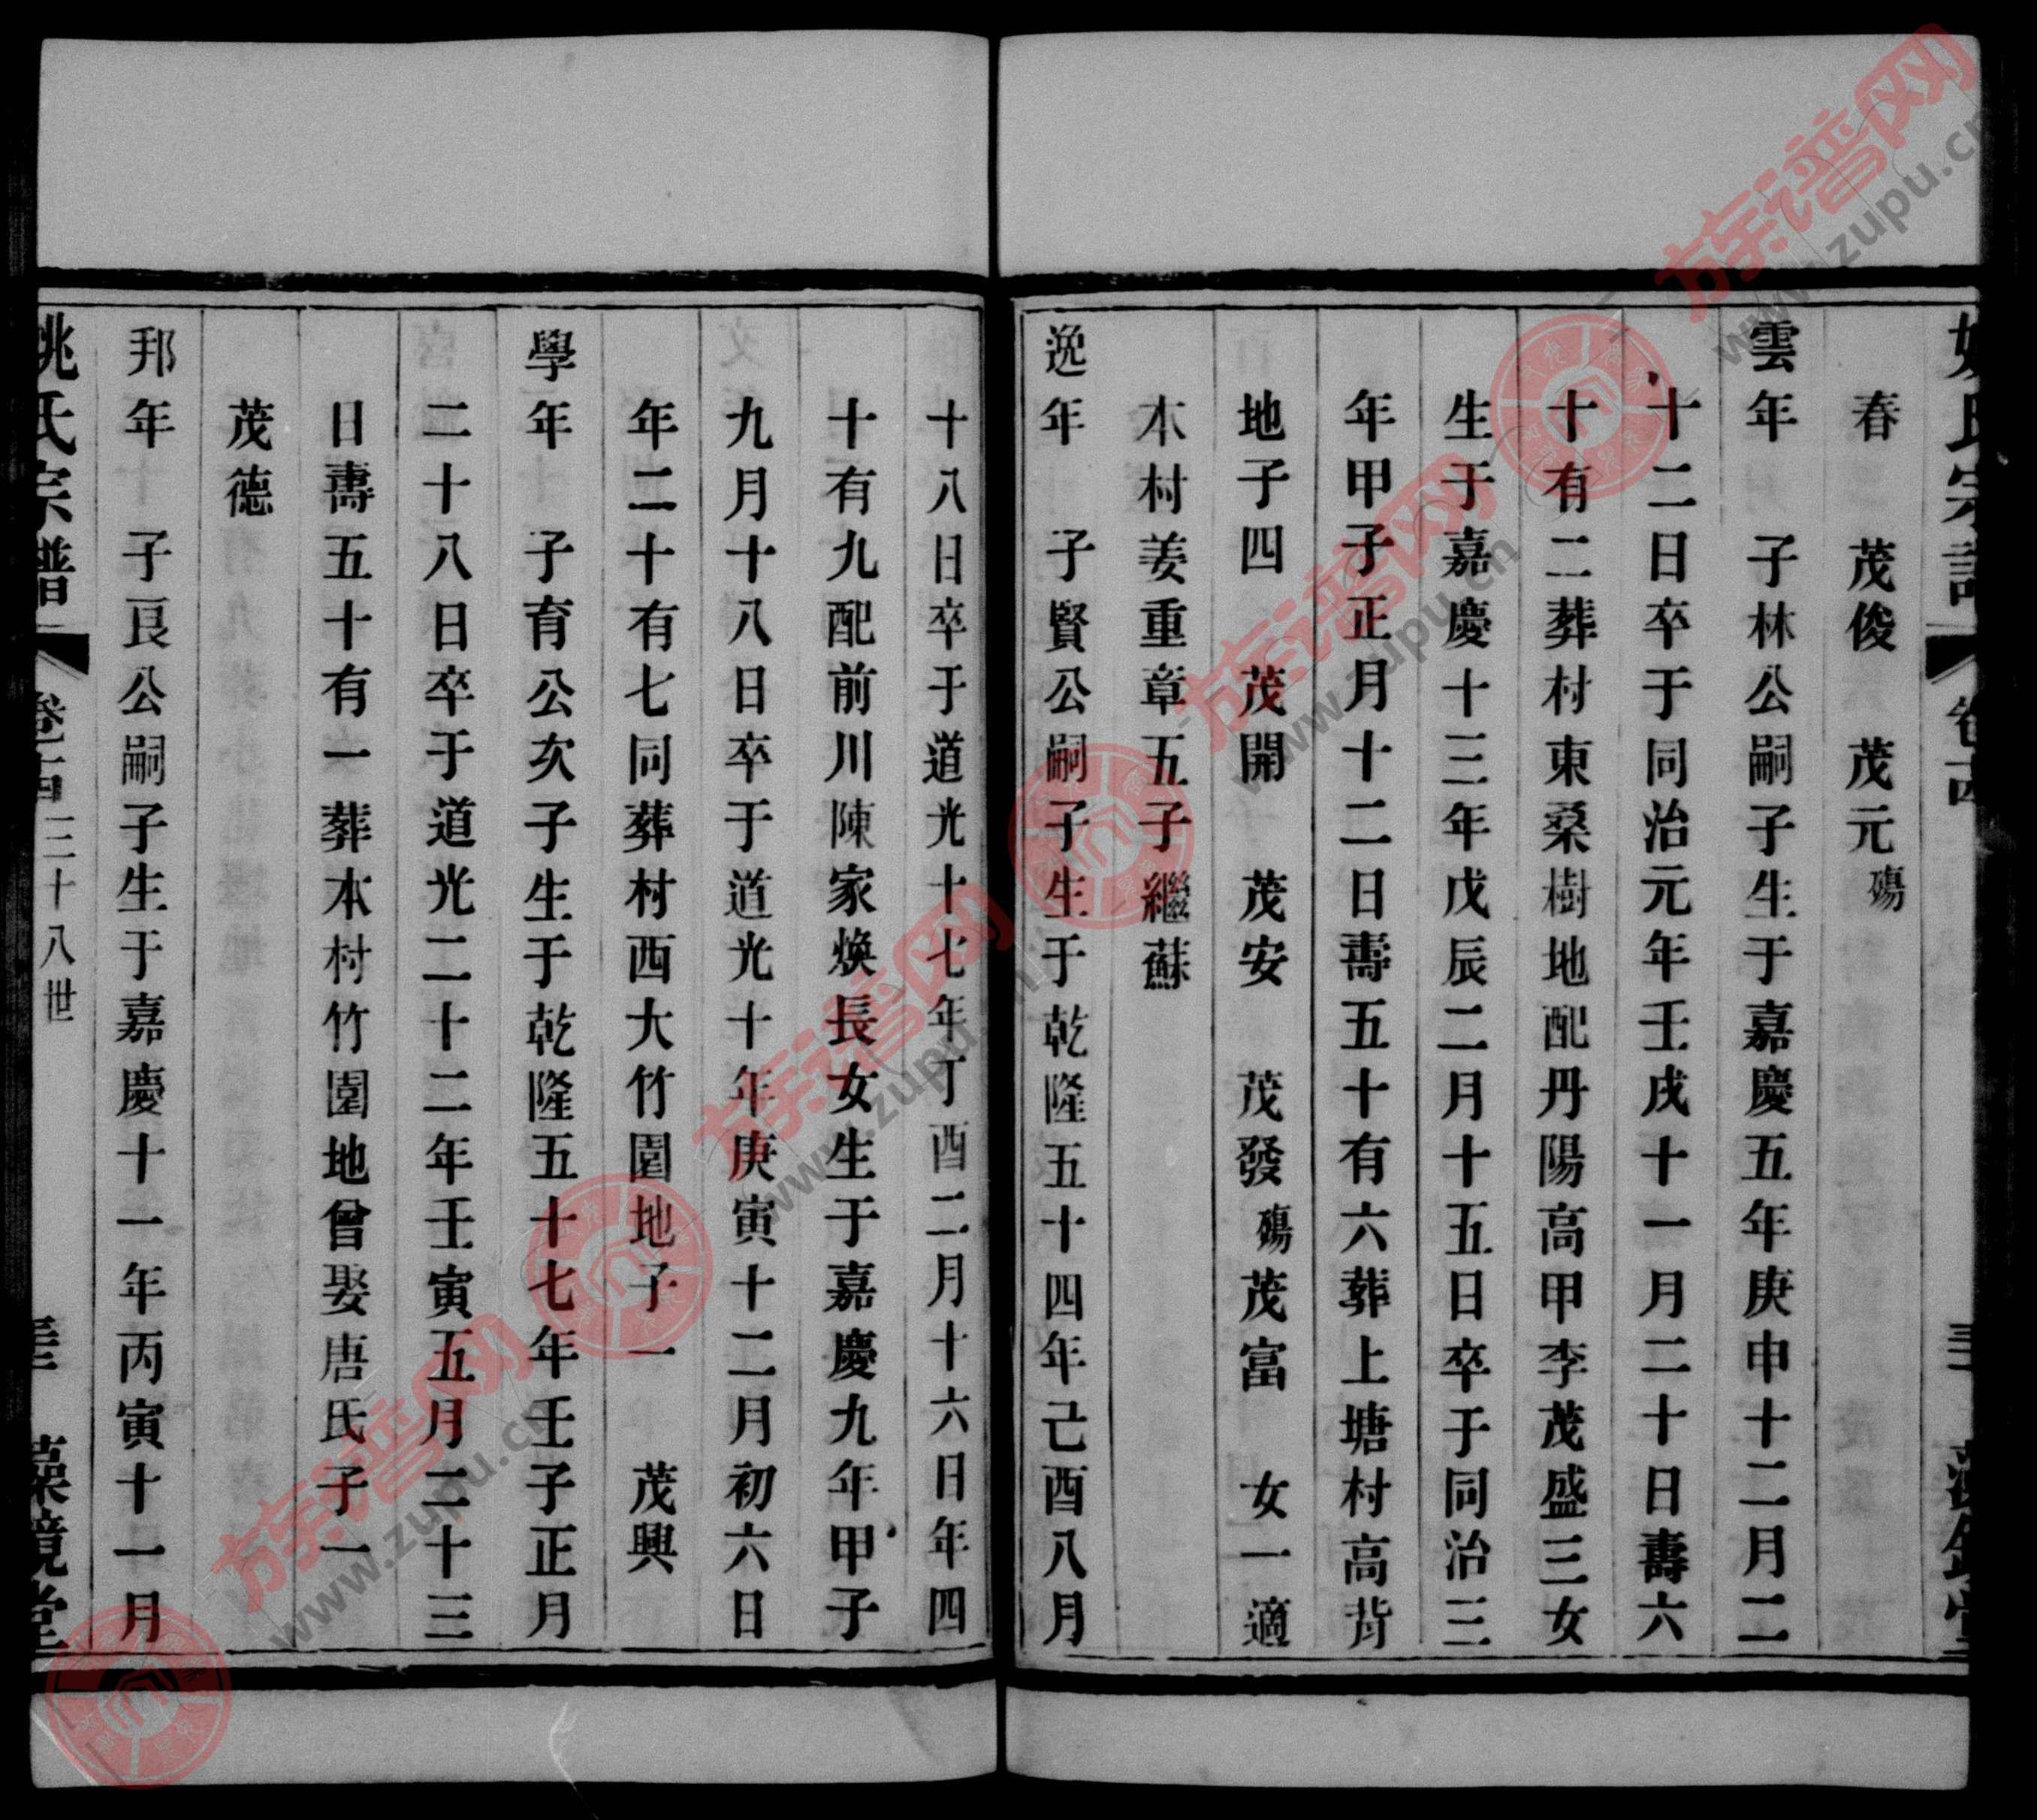 春　茂俊　茂元殤
雲年　子林公嗣子生于嘉慶五年庚申十二月二
十二日卒于同治元年壬戌十一月二十日壽六
十有二葬村東桑樹地配丹陽高甲李茂盛三女
生于嘉慶十三年戊辰二月十五日卒于同治三
年甲子正月十二日壽五十有六葬上塘村高背
地子四　茂開　茂安　茂發殤茂富　女一適
本村姜重章五子繼蘇
逸年　子賢公嗣子生于乾隆五十四年己酉八月
十八日卒于道光十七年丁酉二月十六日年四
十有九配前川陳家煥長女生于嘉慶九年甲子
九月十八日卒于道光十年庚寅十二月初六日
年二十有七同葬村西大竹園地子一　茂興
學年　子育公次子生于乾隆五十七年壬子正月
二十八日卒于道光二十二年壬寅五月二十三
日壽五十有一葬本村竹園地曾娶唐氏子一
茂德
邦年　子良公嗣子生于嘉慶十一年丙寅十一月
姚氏宗譜　卷十四　三十八世　藻鏡堂
族谱网
www.zupu.cn
族谱网
www.zupu.cn
族谱网
www.zupu.cn
族谱网
www.zupu.cn